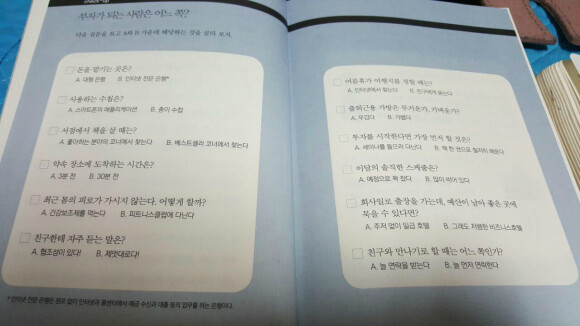 CHECK-UP
부자가 되는 사람은 어느 쪽?
다음 질문을 보고 A와 B 가운데 해당하는 것을 골라 보자.
돈을 맡기는 곳은?
A. 대형 은행 B. 인터넷 전문 은행*
사용하는 수첩은?
A. 스마트폰의 애플리케이션 B. 종이 수첩
서점에서 책을 살 때는?
A. 좋아하는 분야의 코너에서 찾는다 B. 베스트셀러 코너에서 찾는다
약속 장소에 도착하는 시간은?
A. 3분 전 B. 30분 전
최근 몸의 피로가 가시지 않는다. 어떻게 할까?
A. 건강보조제를 먹는다 B. 피트니스클럽에 다닌다
친구한테 자주 듣는 말은?
A. 협조성이 있다! B. 제멋대로다!
* 인터넷 전문 은행은 점포 없이 인터넷과 콜센터에서 예금 수신과 대출 등의 업무를 하는 은행이다.
여름휴가 여행지를 정할 때는?
A. 인터넷에서 찾는다 B. 친구에게 묻는다
출퇴근용 가방은 무거운가, 가벼운가?
A. 무겁다 B. 가볍다
투자를 시작한다면 가장 먼저 할 것은?
A. 세미나를 들으러 다닌다 B. 책 한 권으로 철저히 배운다
이달의 솔직한 스케줄은?
A. 예정으로 꽉 찼다 B. 많이 비어 있다
회사일로 출장을 가는데, 예산이 남아 좋은 곳에
묵을 수 있다면?
A. 주저 없이 일급 호텔 B. 그래도 저렴한 비즈니스호텔
친구와 만나기로 할 때는 어느 쪽인가?
A. 늘 연락을 받는다 B. 늘 먼저 연락한다